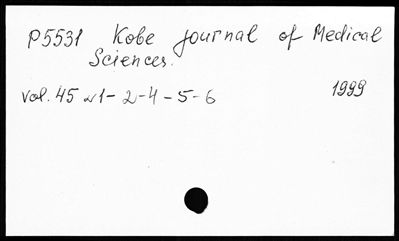 P5531 Kobe journal of Medical
Sciences.
vol. 45 N1-2-4-5-6 1999